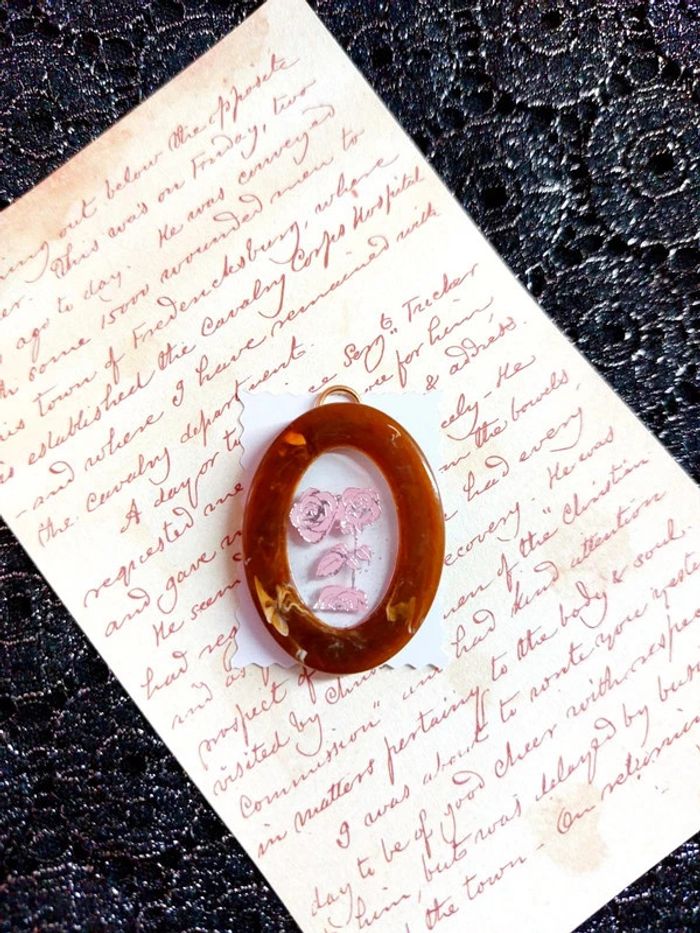 out below the opposite
This was on Friday, two
ago to day. He was conveyed
some 15000 wounded men to
town of Fredericksburg, where
is established the Cavalry Corps Hospital
- and where I have remained with
the cavalry department.
A day or Sergt. Tucker
requested me for him
and gave & address.
He seem cely - He
had in the bowels,
and as had every
prospect of ecovery. He was
visited by men of the "Christian
Commission" and had kind attention
in matters pertaining to the body & soul.
I was about to write you yester
day to be of good cheer with respec
him, but was delayed by busi
the town - On returnin